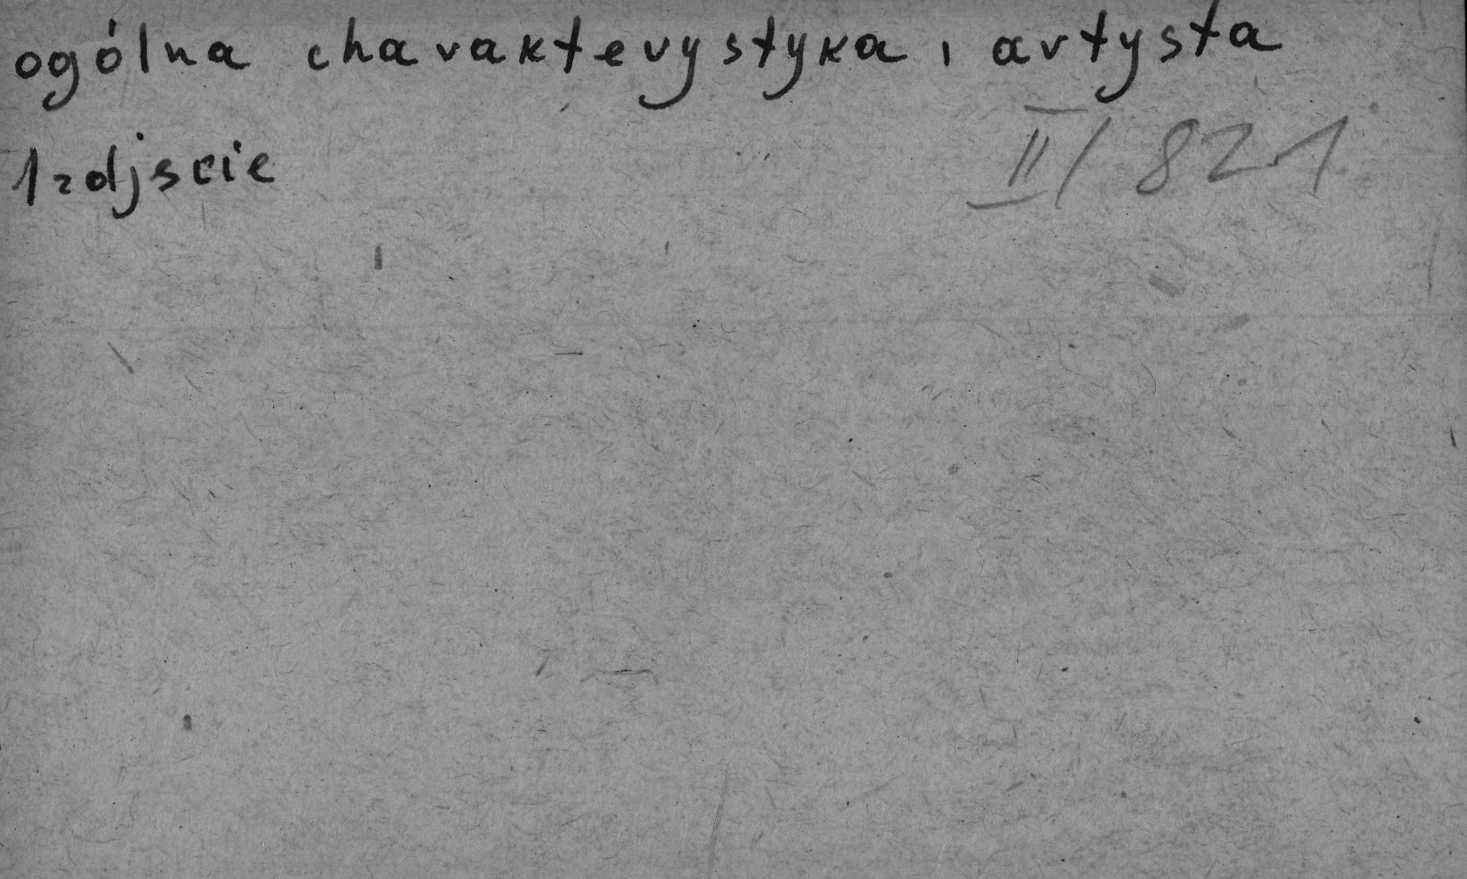 ogólna charakterystyka i artysta
1 zdjscie
II/821